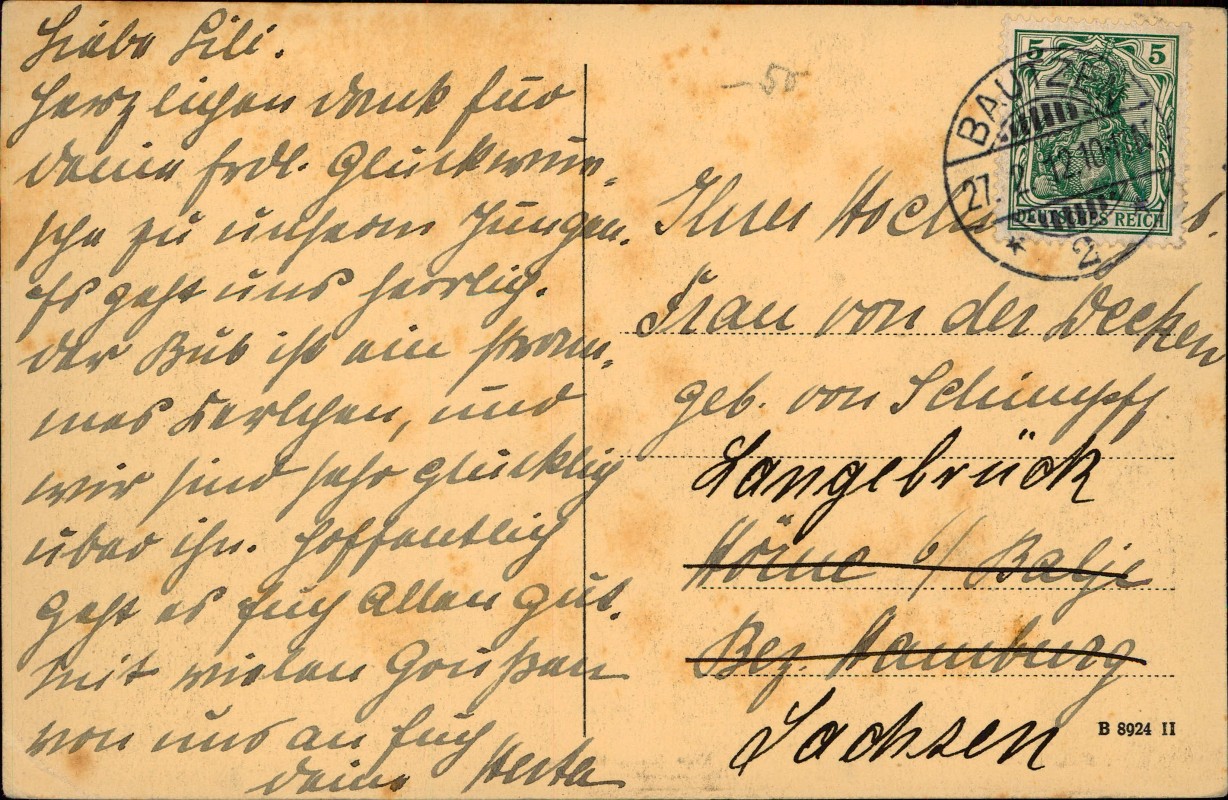 Liebe Lili.
Herzlichen dank für
deine frdl. Glückwün-
sche zu unserm Jungen.
Es geht uns herrlich.
der Bub ist ein stram-
mes Kerlchen, und
wir sind sehr glücklich
über ihn. Hoffentlich
geht es Euch Allen gut.
Mit vielen Grüßen
von uns an Euch
deine Herta
-50
5 5
DEUTSCHES REICH
BAUTZEN
27. 2. 12. 10-11
* 2
Ihrer
Frau von der Decken
geb. von Schimpff
Langebrück
Hörne b/ Balje
Bez. Hamburg
Sachsen
B 8924 II